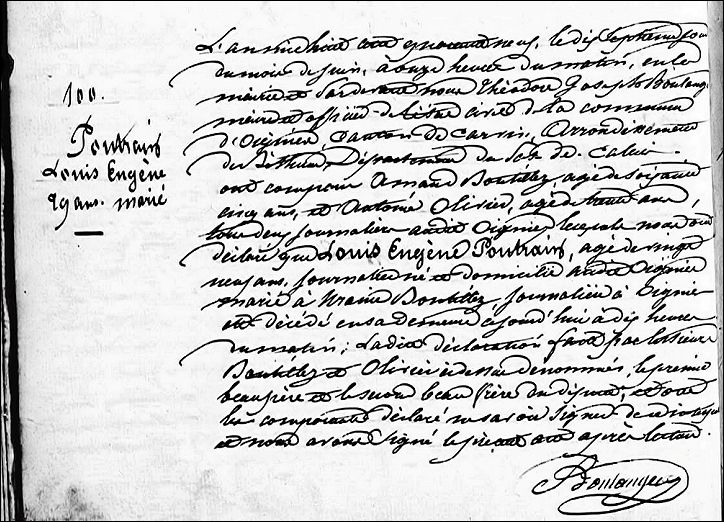 100.
Poutrain
Louis Eugène
29 ans. marié
L'an mil huit cent quarante neuf, le dix septième jour
du mois de juin, à onze heures du matin, en la
mairie et par devant nous Théodore Joseph Boulanger
maire et officier de l'état civil de la commune
d'Oignies, Canton de Carvin, Arrondissement
de Béthune, Département du Pas de Calais.
ont comparu Amand Boutillez, âgé de soixante
cinq ans, et Antoine Olivier, âgé de trente ans,
tous deux journaliers audit Oignies lesquels nous ont
déclaré que Louis Eugène Poutrain, âgé de vingt
neuf ans, journalier né et domicilié audit Oignies
marié à Boutillez journalière à Oignies
est décédé en sa demeure aujourd'hui à dix heures
du matin; Ladite déclaration faite par lesdits
Boutillez et Olivier ci dessus dénommés, le premier
beau père et le second beau frère du défunt, et ont
les comparants déclaré ne savoir signer de ce
et nous avons signé le présent acte après lecture.
Boulanger